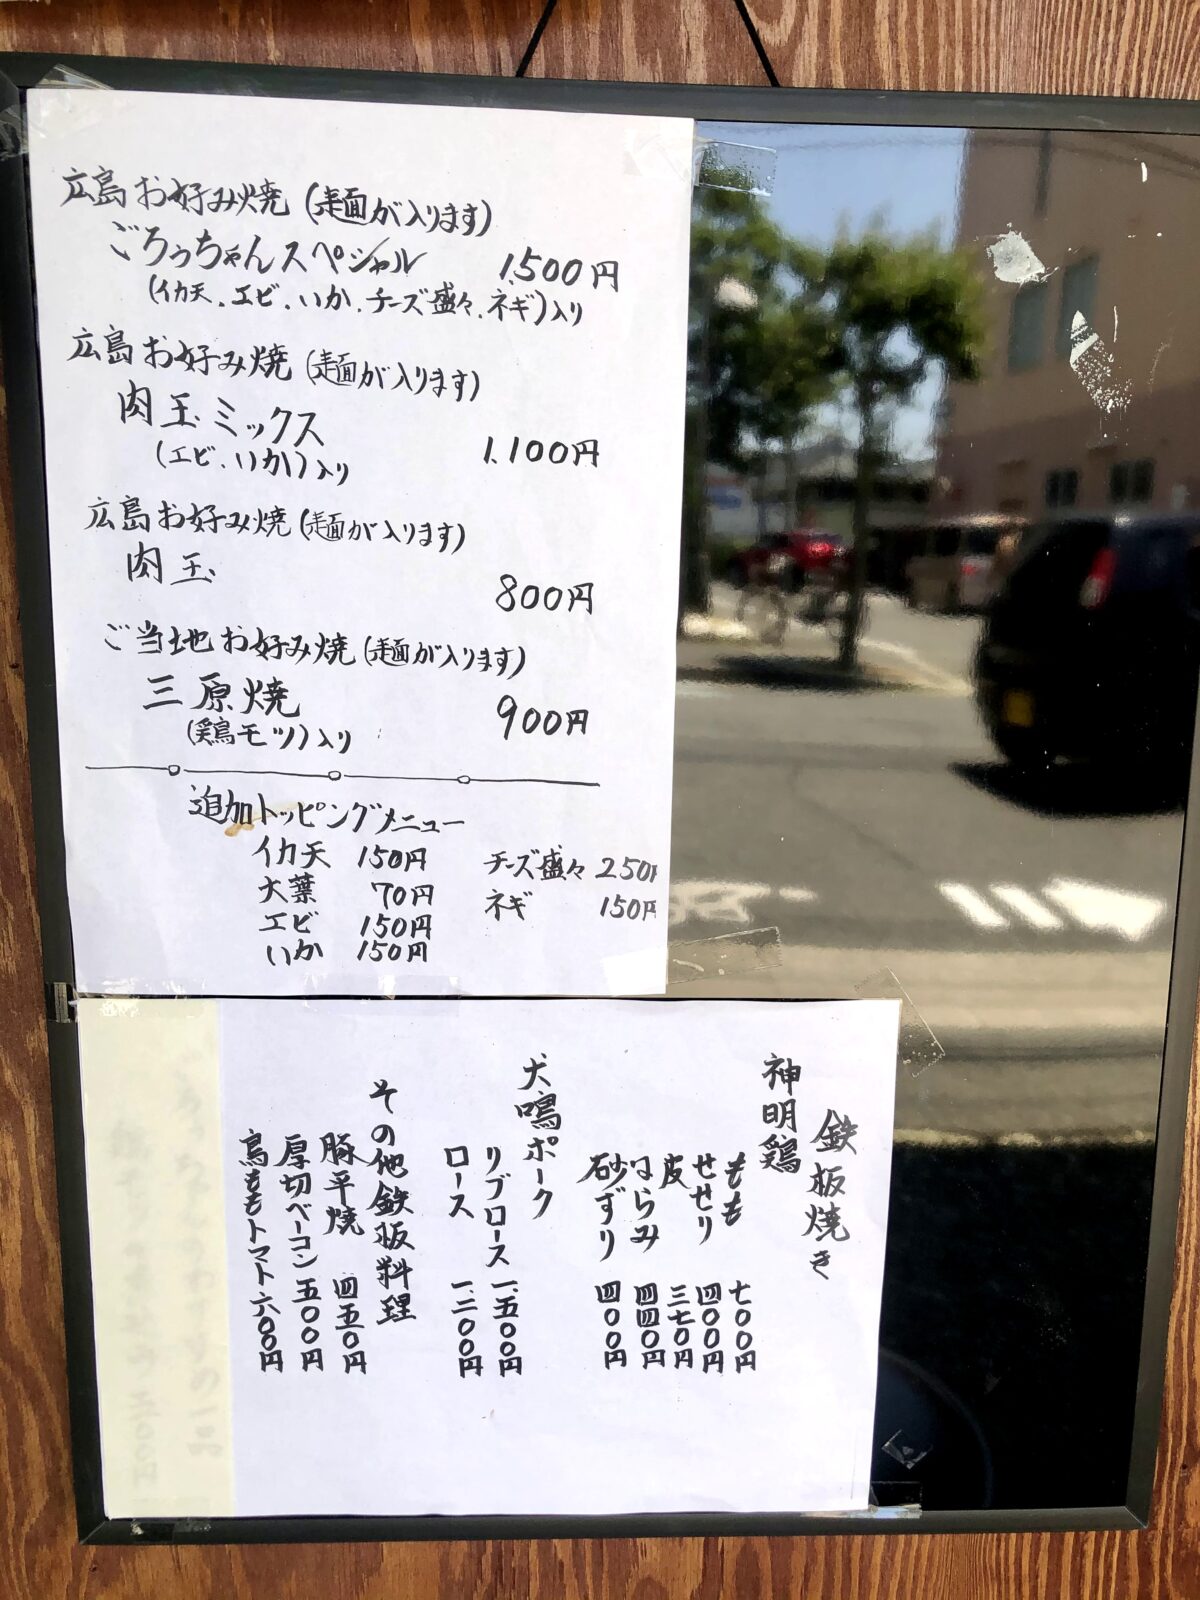 広島お好み焼(麺が入ります)
ごろっちゃんスペシャル 1,500円
(イカ天、エビ、いか、チーズ盛々、ネギ)入り
広島お好み焼(麺が入ります)
肉玉ミックス
(エビ、いか)入り 1,100円
広島お好み焼(麺が入ります)
肉玉
800円
ご当地お好み焼(麺が入ります)
三原焼
(鶏モツ)入り 900円
追加トッピングメニュー
イカ天 150円 チーズ盛々 250円
大葉 70円 ネギ 150円
エビ 150円
いか 150円
鉄板焼き
神明鶏
もも 七〇〇円
せせり 四〇〇円
皮 三七〇円
はらみ 四四〇円
砂ずり 四〇〇円
犬鳴ポーク
リブロース 一、五〇〇円
ロース 一、二〇〇円
その他鉄板料理
豚平焼 四五〇円
厚切ベーコン 五〇〇円
鳥ももトマト 六〇〇円